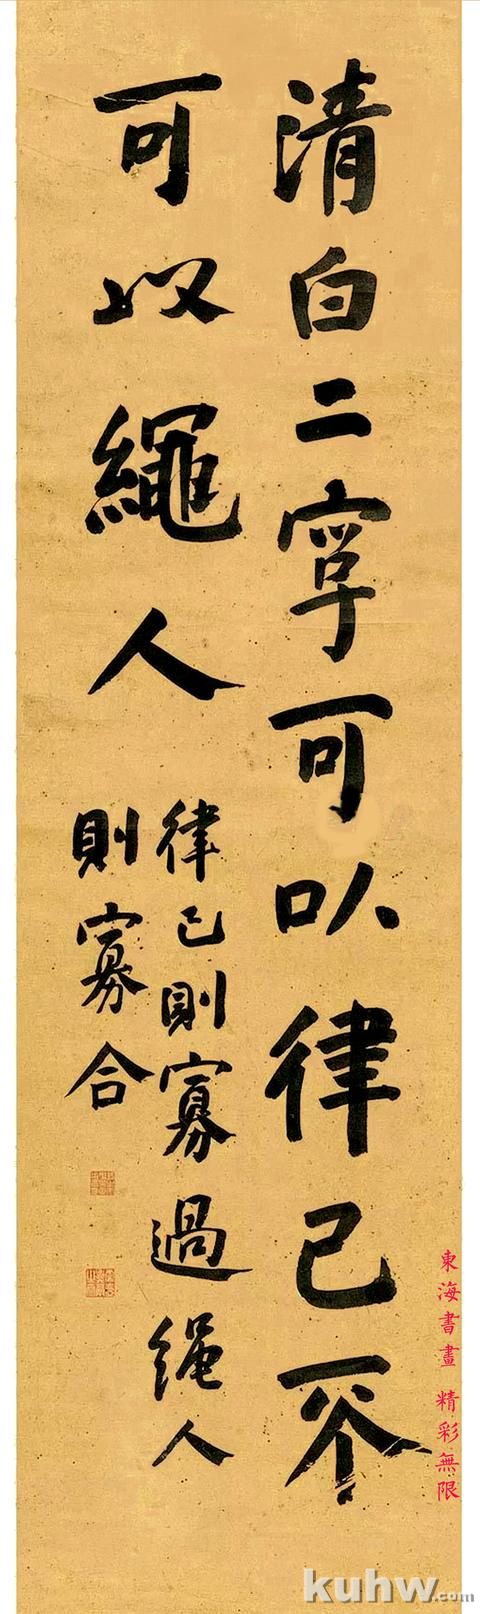 清白二字可以律己不
可以繩人
律己則寡過繩人
則寡合
東海書畫 精彩無限
kuhw.com